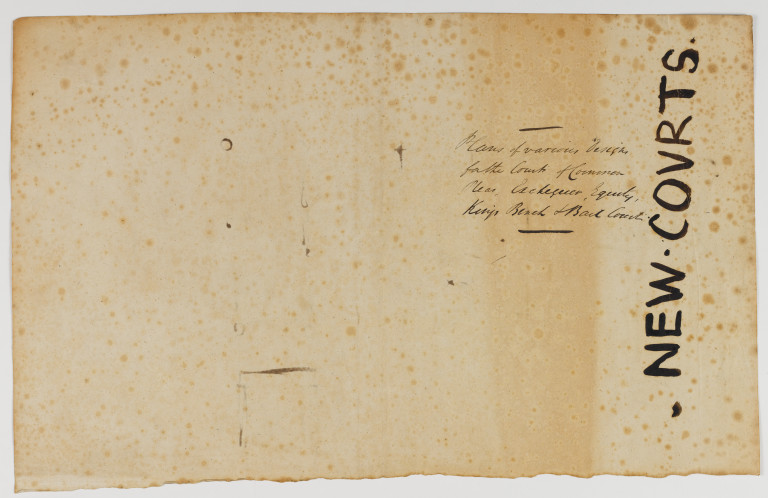 Plans of various Designs
for the Courts of Common
Pleas, Exchequer, Equity,
Kings Bench & Bail Courts
· NEW · COVRTS ·